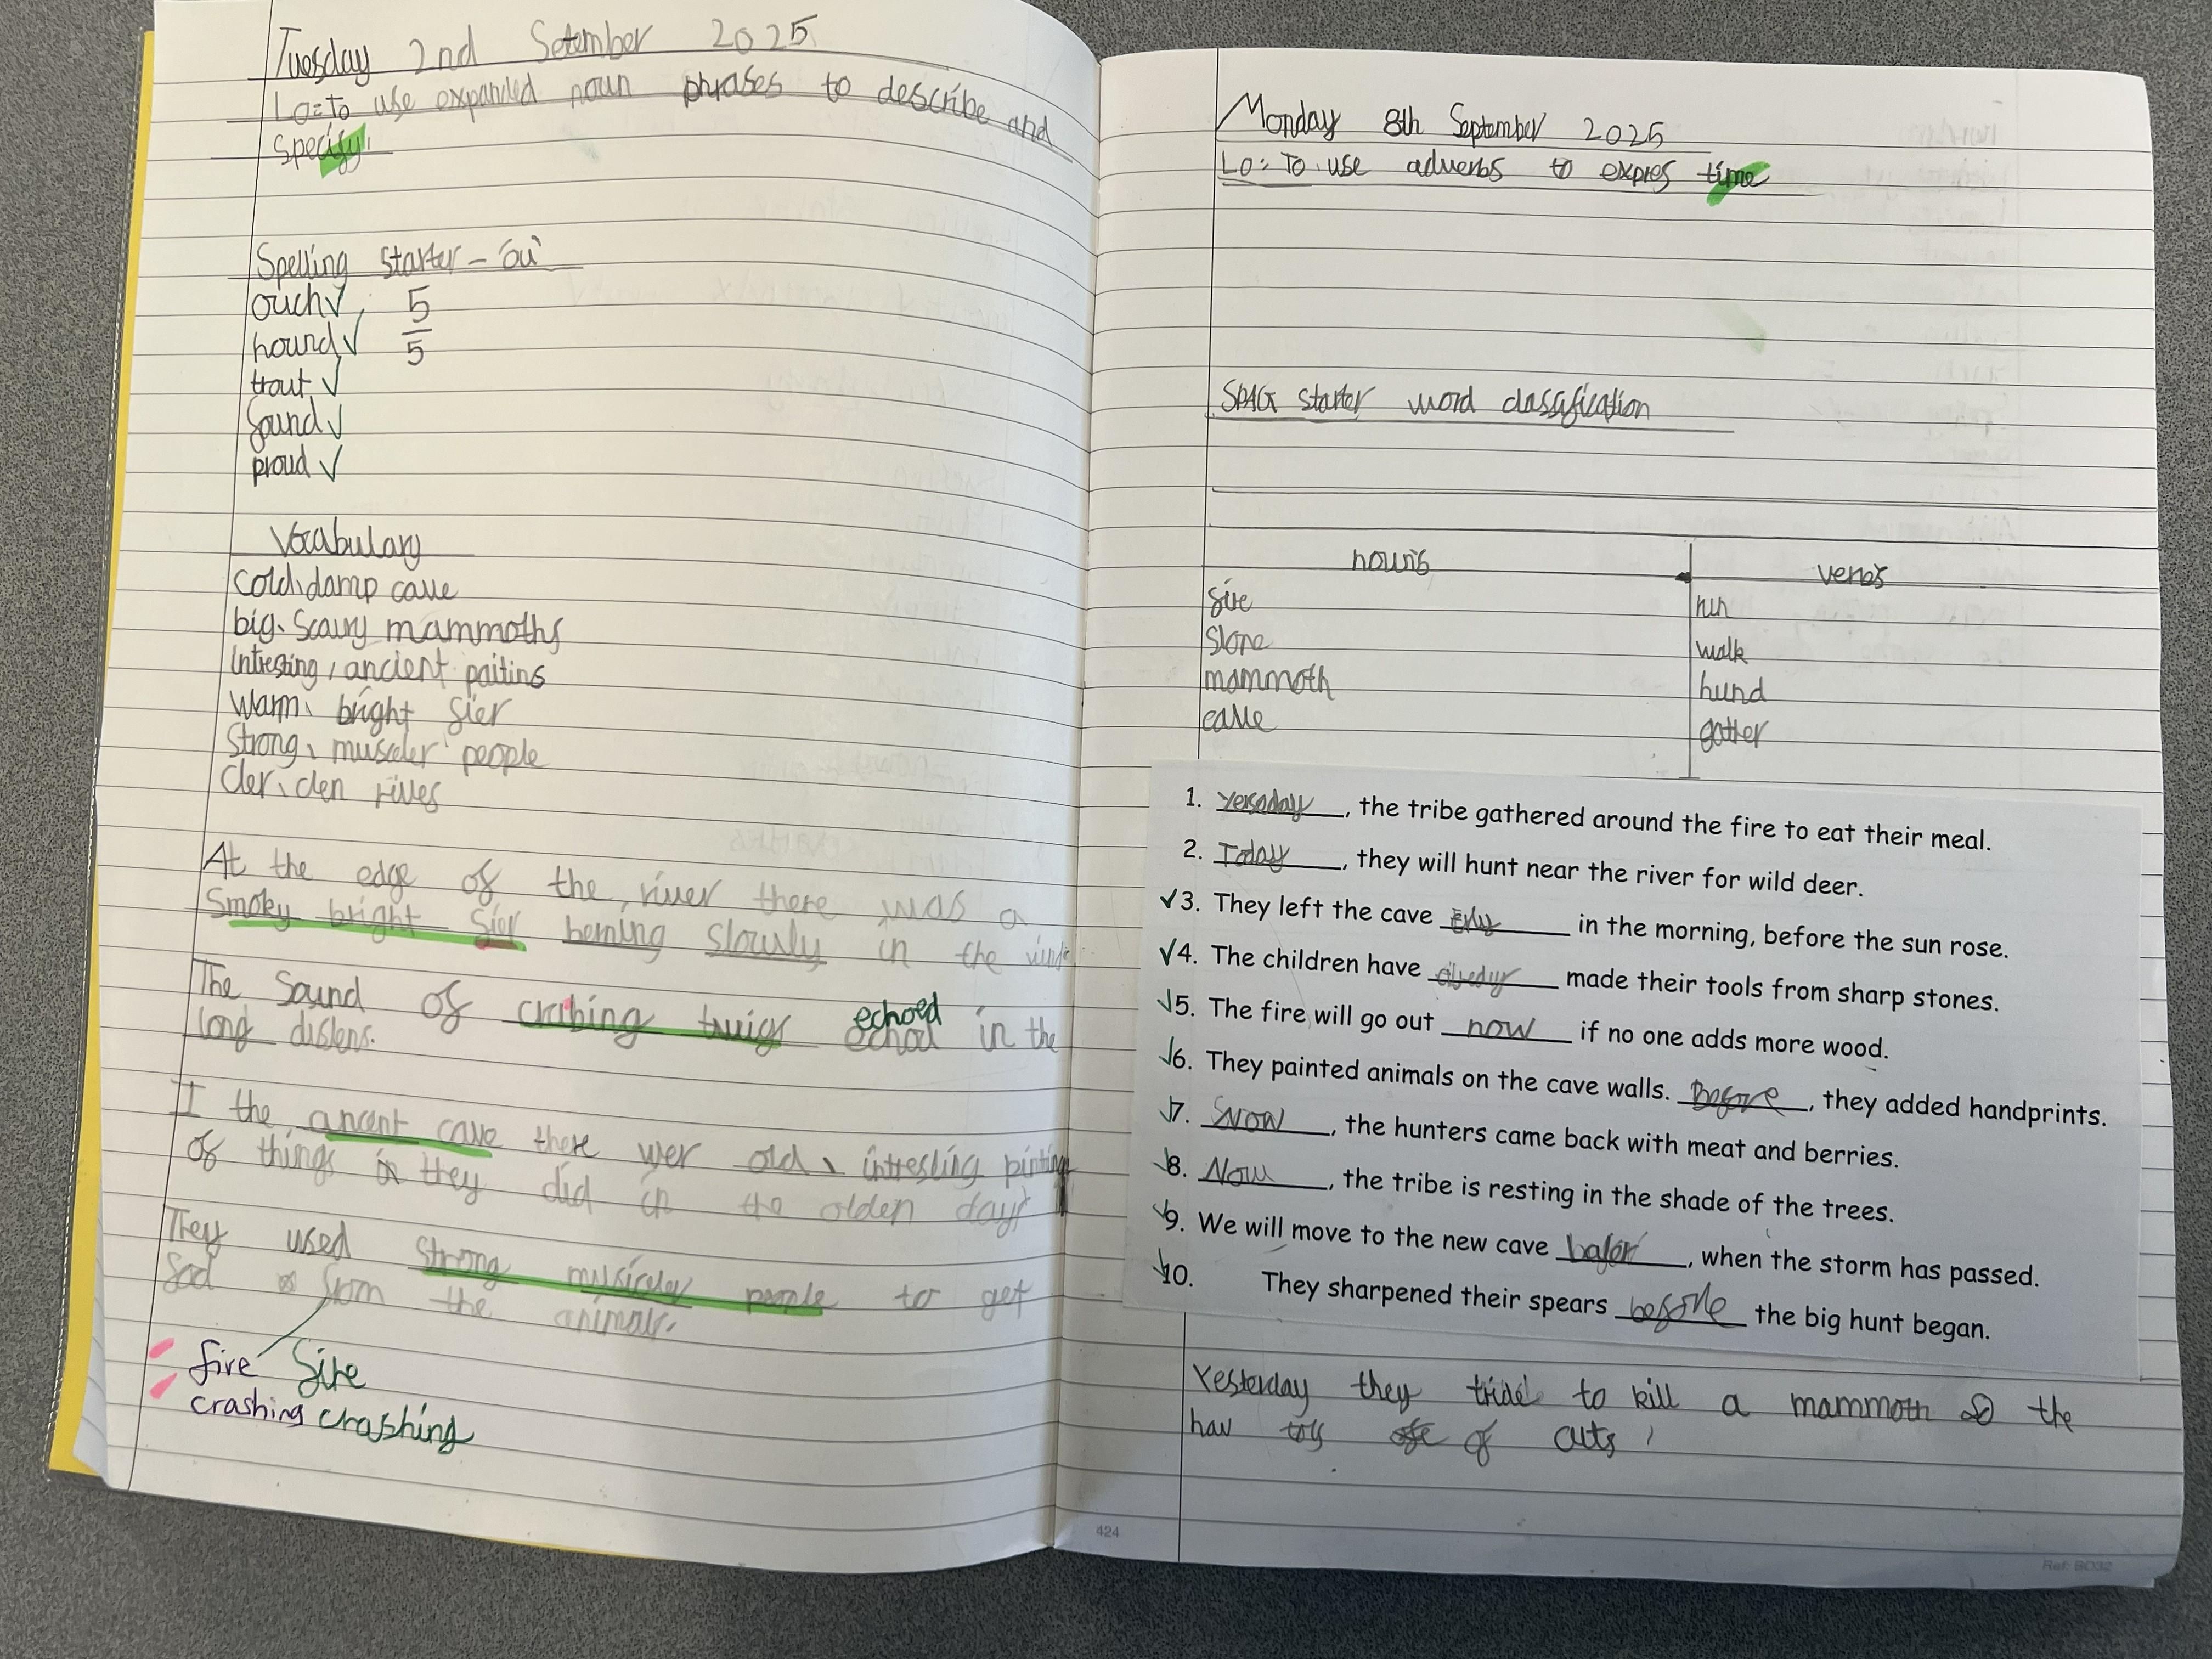 Tuesday 2nd Setember 2025
Lo: To use expanded noun phrases to describe and
specify.
Spelling starter - 'ou'
ouch ✓ 5
hound ✓ 5
trout ✓
sound ✓
proud ✓
Vocabulary
cold, damp cave
big, scary mammoths
Intresting, ancient paitins
warm, bright fier
strong, musceler people
cler, clen rives
At the edge of the river there was a
smoky bright fier berning slowly in the
The sound of twigs echod echoed in the
long distens.
I the ancent cave there wer old, intresting
of things they did in the olden days
They used strong people to get
food from the animals.
fire fire
crashing crashing
424
Monday 8th September 2025
Lo: To use adverbs to expres time
SPAG starter word classification
nouns verbs
fire run
stone walk
mammoth hund
cave gather
1. Yersoday, the tribe gathered around the fire to eat their meal.
2. Today, they will hunt near the river for wild deer.
✓3. They left the cave in the morning, before the sun rose.
✓4. The children have made their tools from sharp stones.
✓5. The fire will go out now if no one adds more wood.
✓6. They painted animals on the cave walls. Before, they added handprints.
✓7. , the hunters came back with meat and berries.
✓8. Now, the tribe is resting in the shade of the trees.
✓9. We will move to the new cave , when the storm has passed.
✓10. They sharpened their spears before the big hunt began.
Yesterday they to kill a mammoth so the
hav of cuts
Ref: BD32